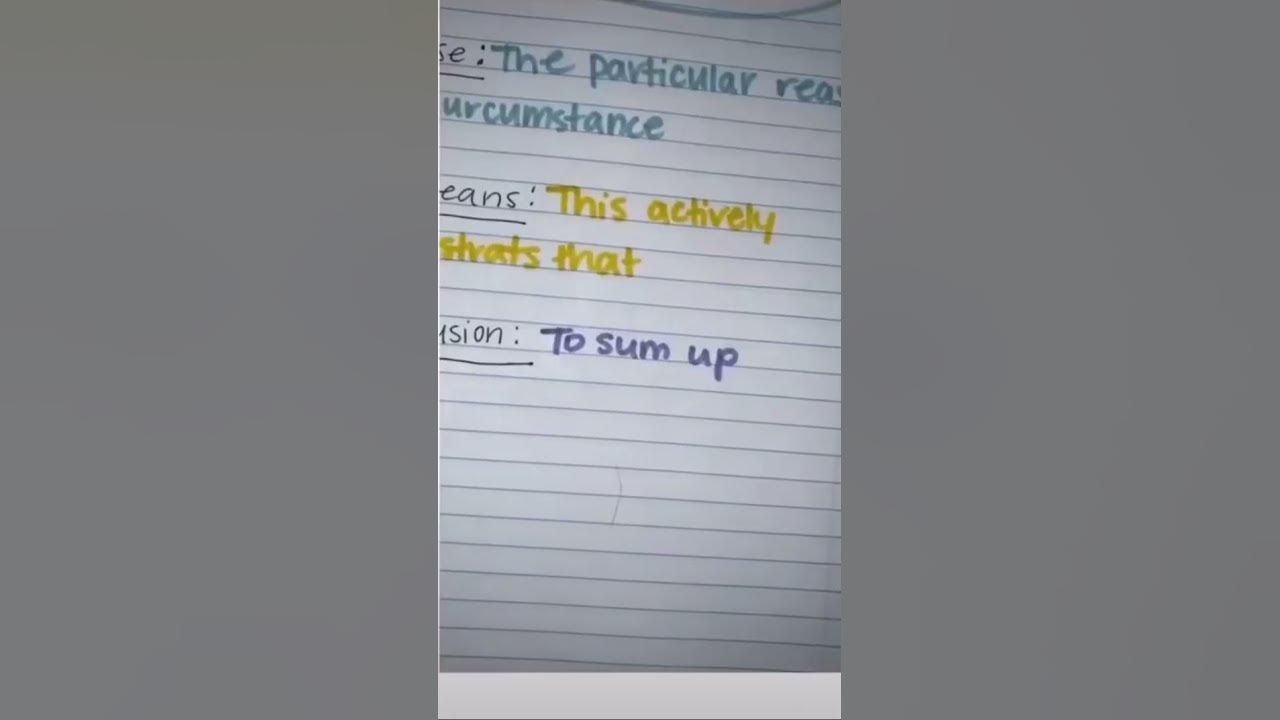 se: The particular reas
urcumstance
eans: This actively
strats that
usion: To sum up